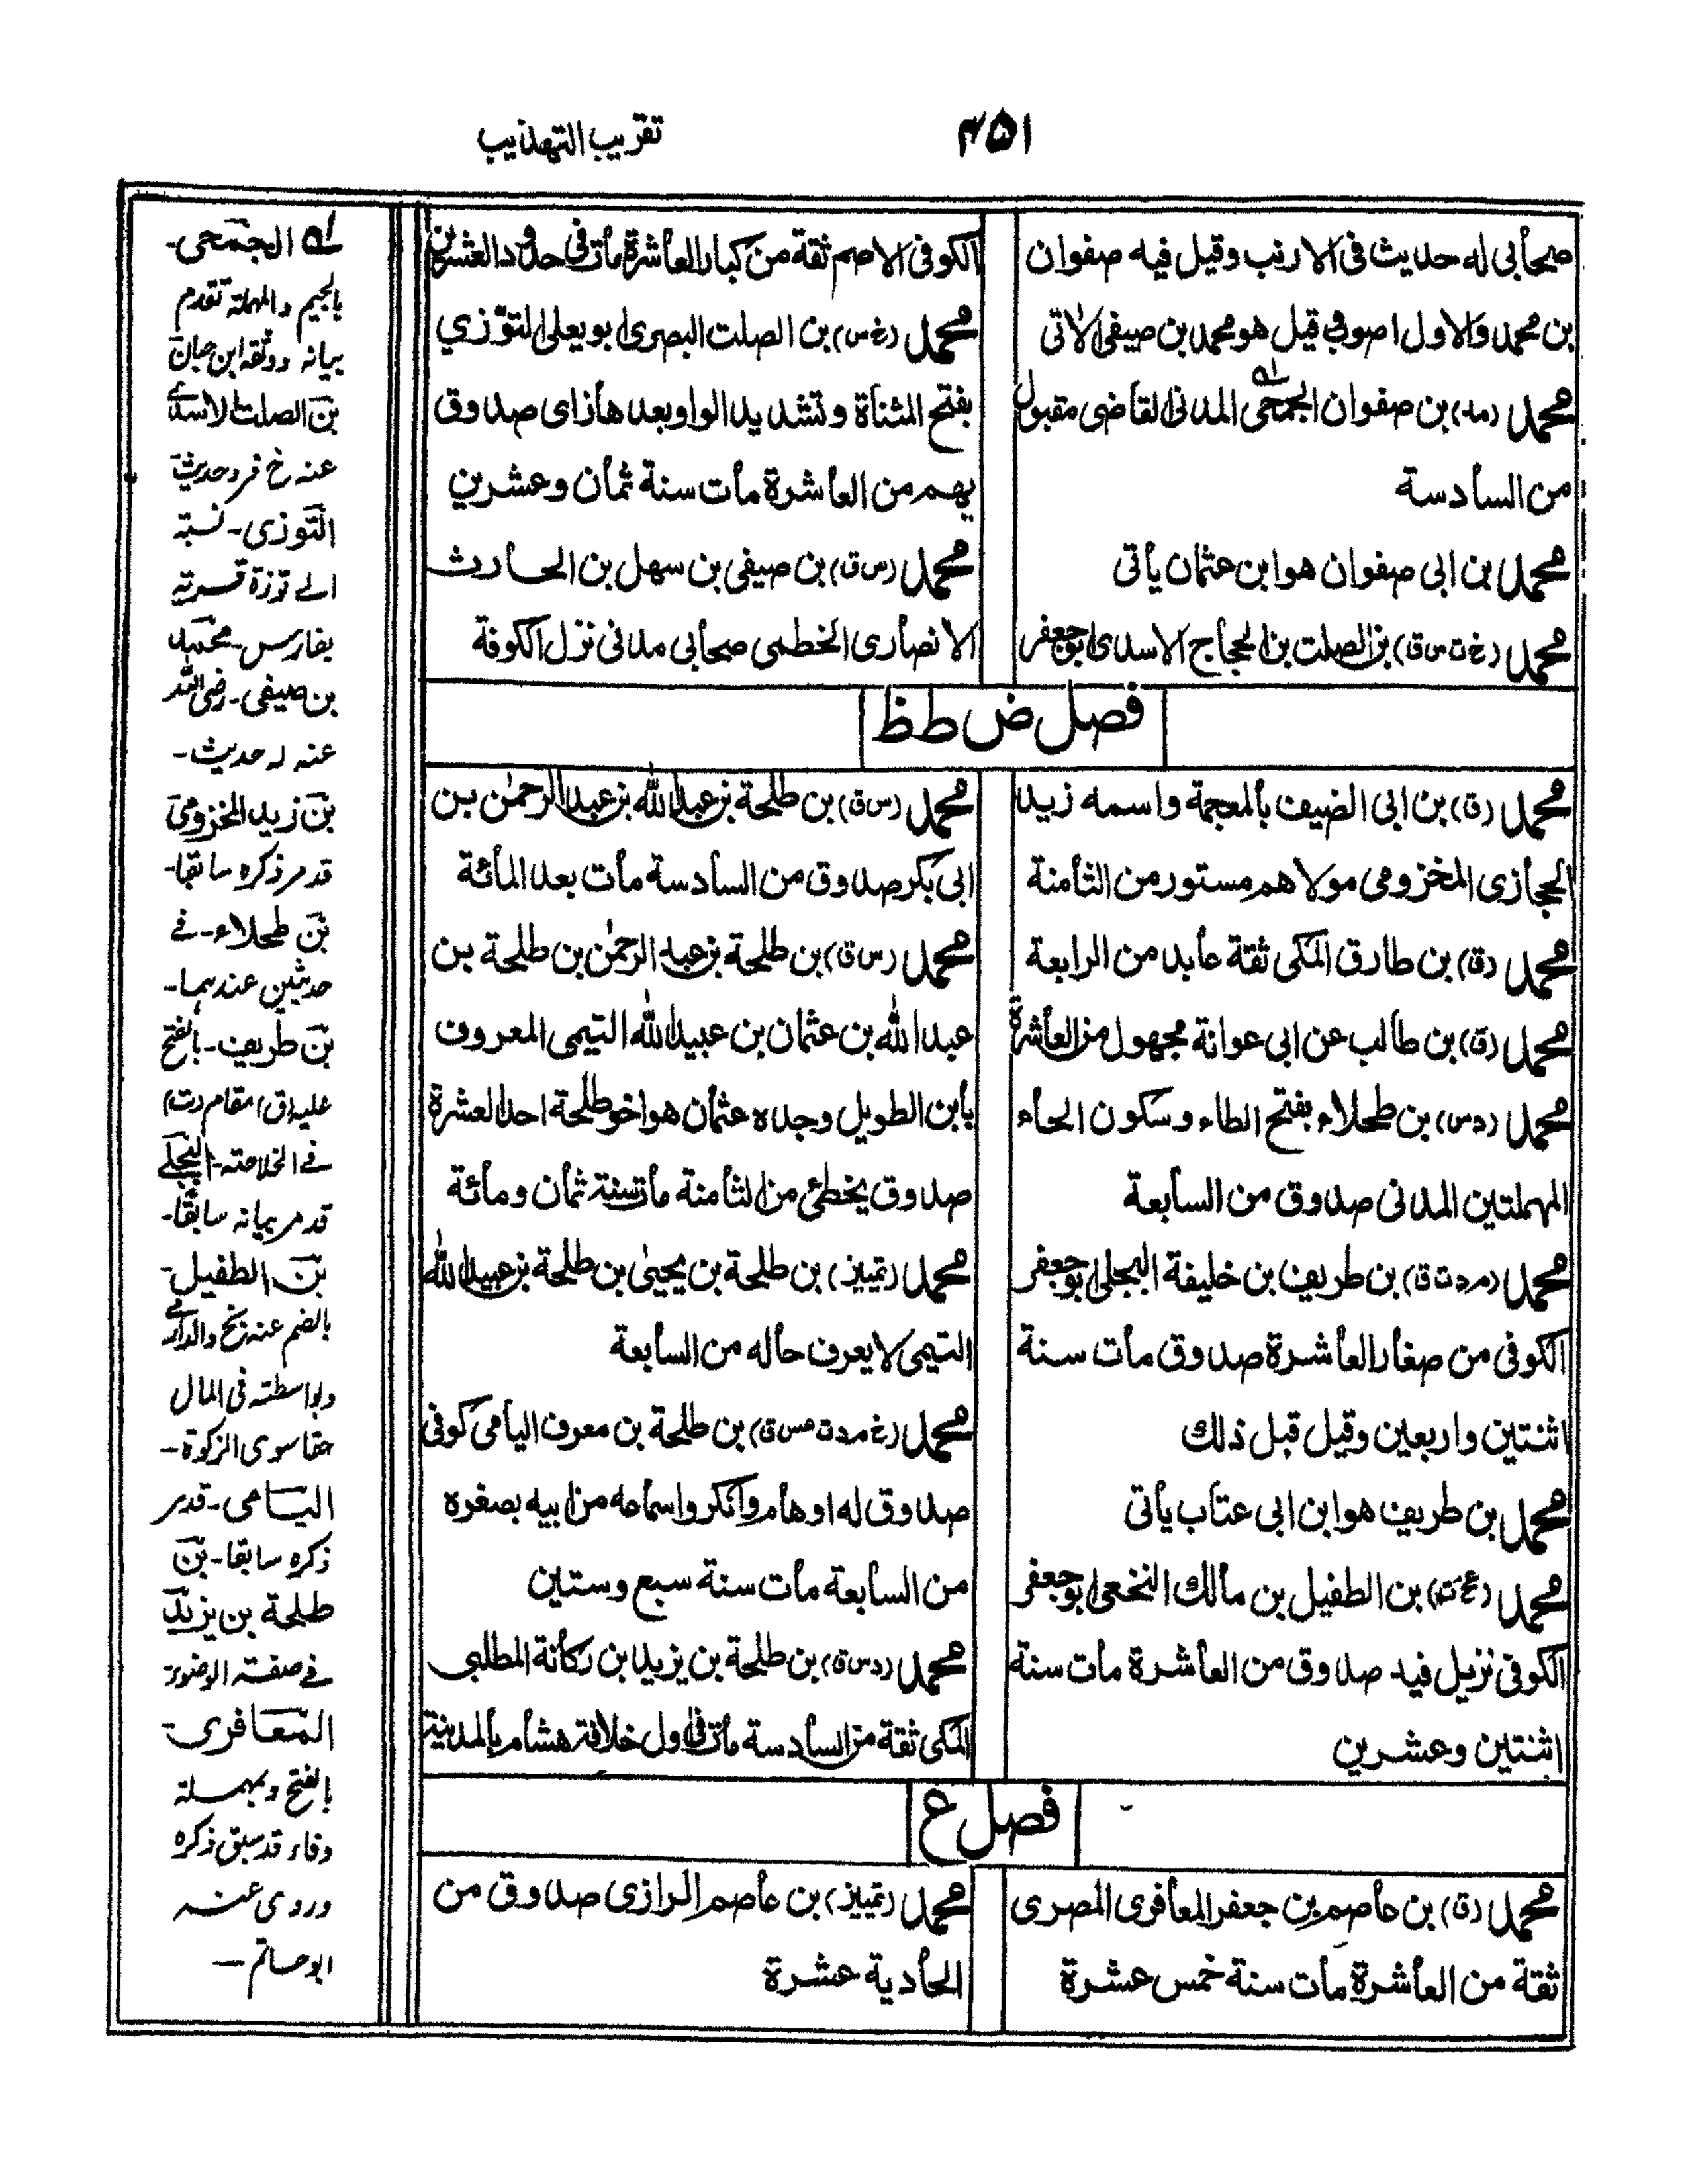 تقريب التهذيب
٤٥١
صحابی له حديث فی الارنب وقيل فيه صفوان
بن محمد والاول اصوب قيل هو محمد بن صيفی الاتی
محمد (مد) بن صفوان الجمحی المدنی القاضی مقبول
من السادسة
محمد بن ابی صفوان هو ابن عثمان ياتی
محمد (خ ت س ق) بن الصلت بن الحجاج الاسدی ابو جعفر
الكوفی الاصم ثقة من كبار العاشرة مات فی حدود العشرين
محمد (خ س) بن الصلت البصری ابو يعلی التوّزي
بفتح المثناة وتشديد الواو بعدها زای صدوق
يهم من العاشرة مات سنة ثمان وعشرين
محمد (س ق) بن صيفی بن سهل بن الحارث
الانصاری الخطمی صحابی مدنی نزل الكوفة
فصل ض ط ظ
محمد (ق) بن ابی الضيف بالمعجمة واسمه زيد
الحجازی المخزومی مولاهم مستور من الثامنة
محمد (ق) بن طارق المكی ثقة عابد من الرابعة
محمد (ق) بن طالب عن ابی عوانة مجهول من العاشرة
محمد (د س) بن طحلاء بفتح الطاء وسكون الحاء
المهملتين المدنی صدوق من السابعة
محمد (م د ت ق) بن طريف بن خليفة البجلی ابو جعفر
الكوفی من صغار العاشرة صدوق مات سنة
اثنتين واربعين وقيل قبل ذلك
محمد بن طريف هو ابن ابی عتاب ياتی
محمد (بخ ت) بن الطفيل بن مالك النخعی ابو جعفر
الكوفی نزيل فيد صدوق من العاشرة مات سنة
اثنتين وعشرين
محمد (س ق) بن طلحة بن عبد الله بن عبد الرحمٰن بن
ابی بكر صدوق من السادسة مات بعد المائة
محمد (س ق) بن طلحة بن عبد الرحمٰن بن طلحة بن
عبد الله بن عثمان بن عبيد الله التيمی المعروف
بابن الطويل وجده عثمان هو اخو طلحة احد العشرة
صدوق يخطئ من الثامنة مات سنة ثمان ومائة
محمد (تمييز) بن طلحة بن يحيیٰ بن طلحة بن عبيد الله
التيمی لا يعرف حاله من السابعة
محمد (خ م د ت عس ق) بن طلحة بن معرف اليامی كوفی
صدوق له اوهام وانكروا سماعه من ابيه بصغره
من السابعة مات سنة سبع وستين
محمد (د س ق) بن طلحة بن يزيد ابن ركانة المطلبی
المكی ثقة من السادسة مات فی اول خلافة هشام بالمدينة
فصل ع
محمد (ق) بن عاصم بن جعفر المعافری المصری
ثقة من العاشرة مات سنة خمس عشرة
محمد (تمييز) بن عاصم الرازی صدوق من
الحادية عشرة
لہ الجمحی-
بالجيم والمهملة تقدم
بيانه ووثقه ابن حبان
بن الصلت الاسدے
عنه خ فرد حديث
التوزی- نسبة
الے توزة قرية
بفارس- محمد
بن صيفی- رضی اللہ
عنه له حديث-
بن زيد المخزومی
قد مر ذكره سابقا-
بن طحلاء- فے
حديثين عندهما-
بن طريف- بالفتح
عليه (ق) مقام (ت)
فے الخلاصة- البجلے
قد مر بيانه سابقًا-
بن الطفيل-
بالضم عنه بخ والدارمے
وبواسطة فی المال
حقا سوی الزكوة-
اليامی- قد مر
ذكره سابقا- بن
طلحة بن يزيد
فے صفة الوضوء
المعافری-
بالفتح وبمهملة
وفاء قد سبق ذكره
وروی عنه
ابو حاتم-